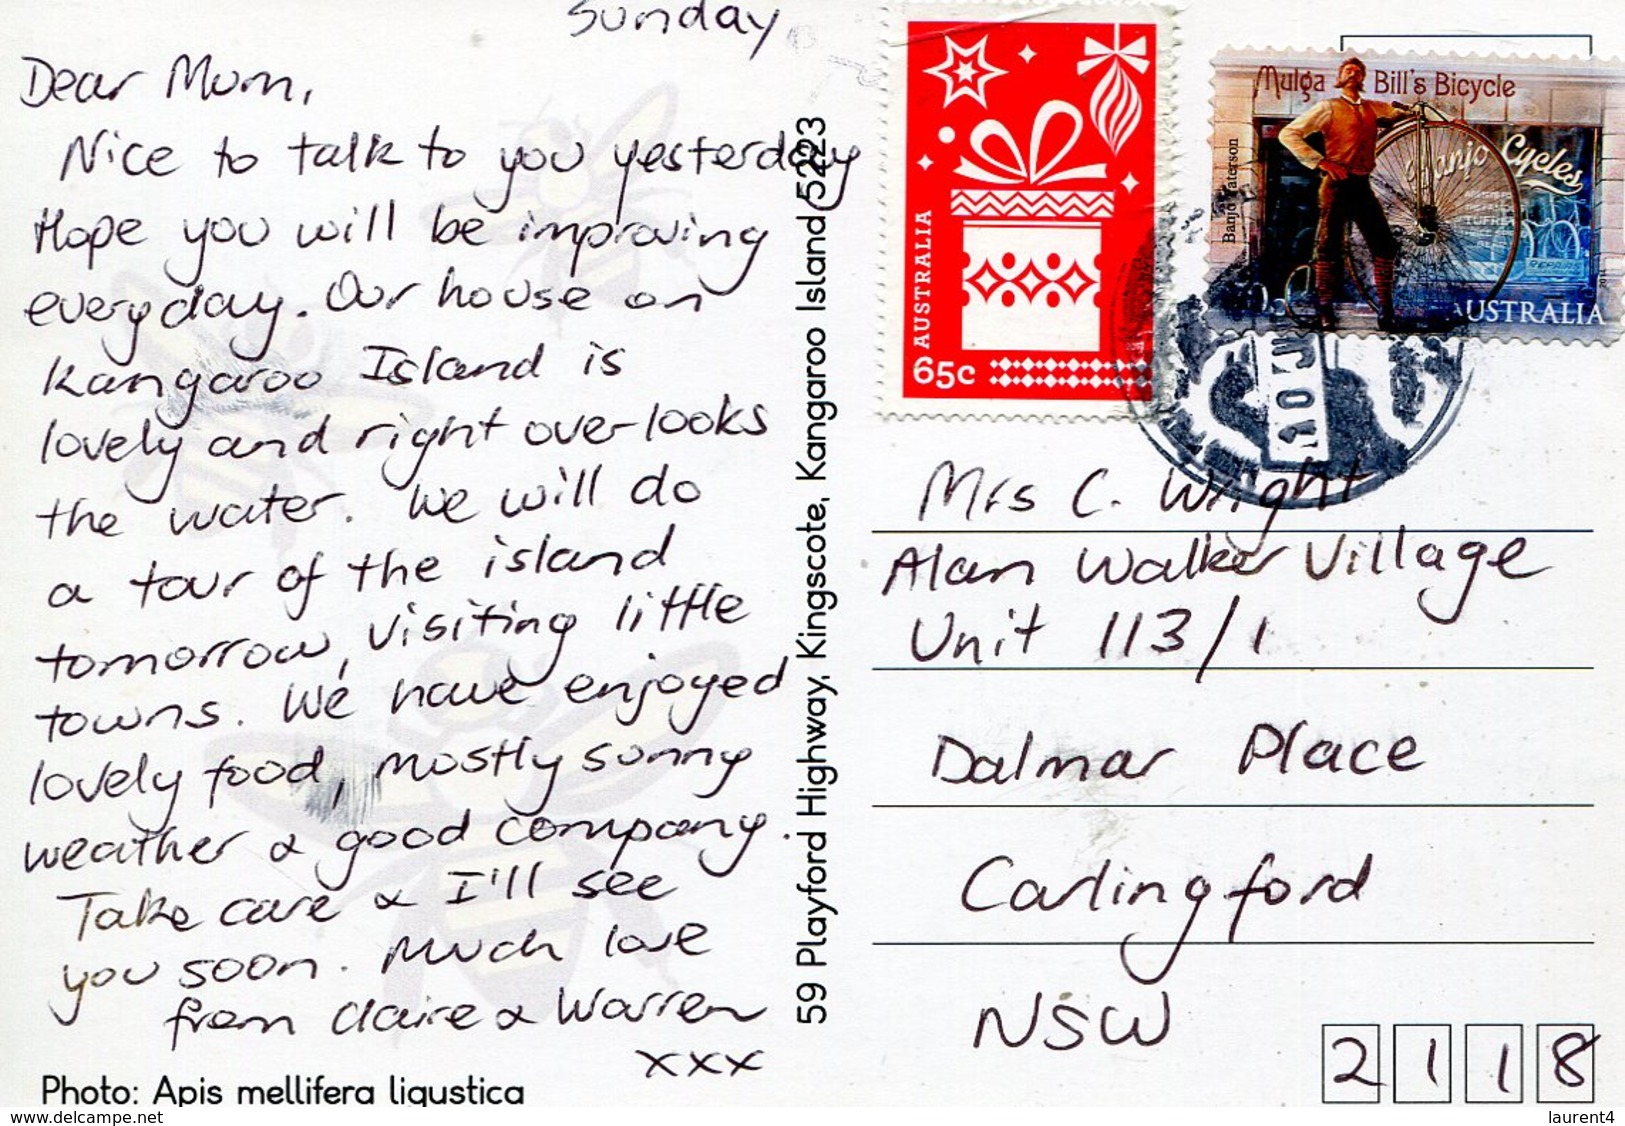 Sunday
Dear Mum,
Nice to talk to you yesterday
Hope you will be improving
everyday. Our house on
Kangaroo Island is
lovely and right over-looks
the water. We will do
a tour of the island
tomorrow, visiting little
towns. We have enjoyed
lovely food, mostly sunny
weather & good company.
Take care & I'll see
you soon. Much love
from Claire & Warren
xxx
Photo: Apis mellifera ligustica
59 Playford Highway, Kingscote, Kangaroo Island 5223
AUSTRALIA
65c
Mulga Bill's Bicycle
Banjo Paterson
Banjo Cycles
REPAIRS
AUSTRALIA
Mrs C. Wright
Alan Walker Village
Unit 113/1
Dalmar Place
Carlingford
NSW
2118
www.delcampe.net
laurent4